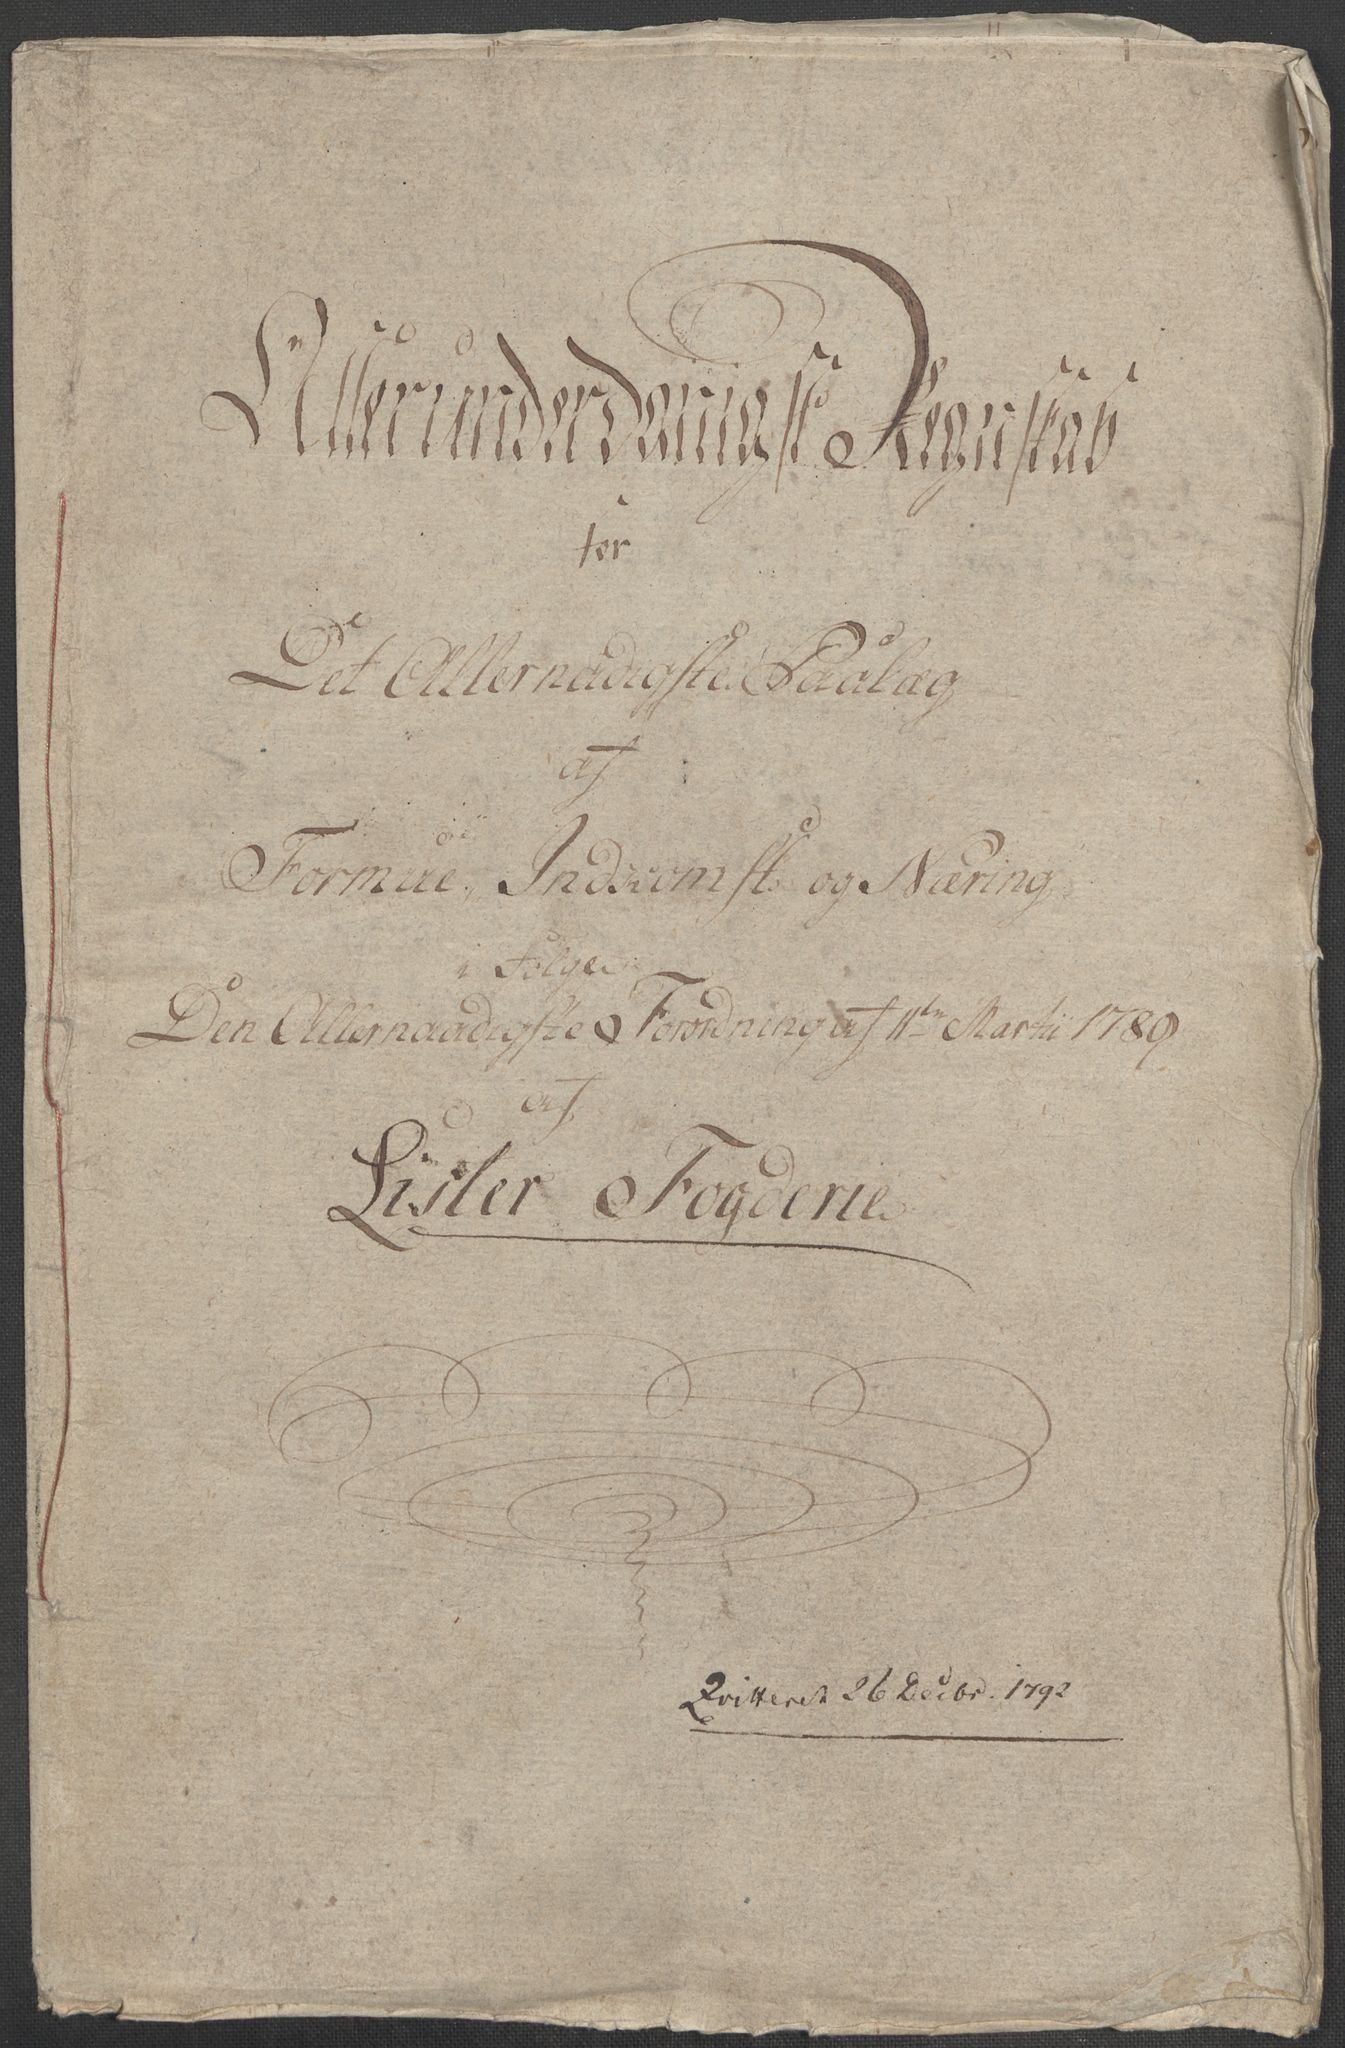 Allerunderdanigst Regnskab
for
Det Allernådigste Paalæg
af
Formue, Indkomst og Næring
i Følge
Den Allernaadigste Forordning af 11te Martii 1789
af
Lister Fogderie
Qvitteret 26 Decbr. 1792